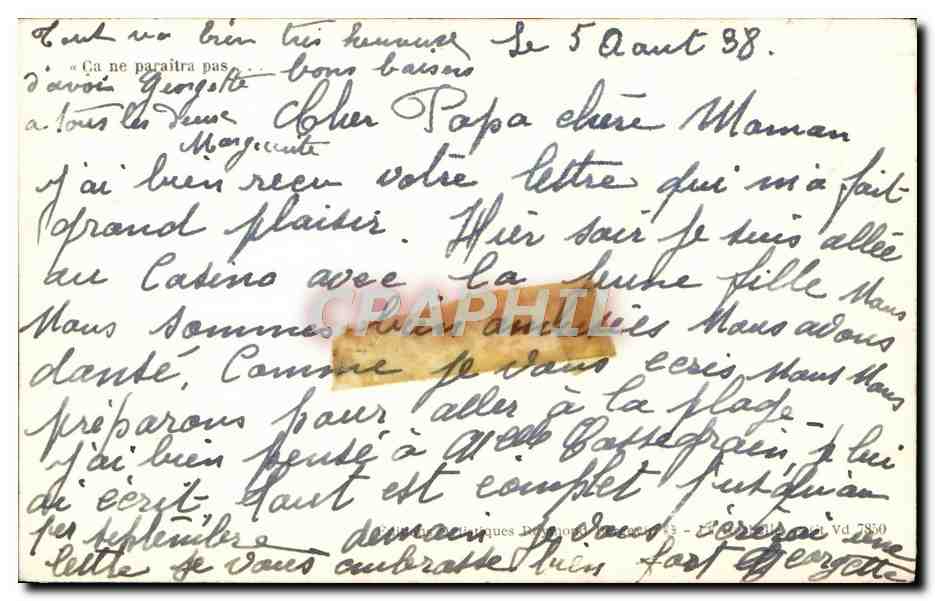 Tout va bien très heureuse
d'avoir Georgette bons baisers
à tous les deux
Marguerite
« Ca ne paraîtra pas. . .
Le 5 Aout 38.
Cher Papa chère Maman
j'ai bien reçu votre lettre qui m'a fait
grand plaisir. Hier soir je suis allée
au Casino avec la jeune fille nous
nous sommes bien amusées nous avons
dansé. Comme je vous ecris nous nous
préparons pour aller à la plage
j'ai bien pensé à Melle Cassegrain, je lui
ai écrit, tout est complet jusqu'au
1er septembre demain je vous écrirai une
lettre je vous embrasse bien fort Georgette
CPAPHIL
Vd 7850